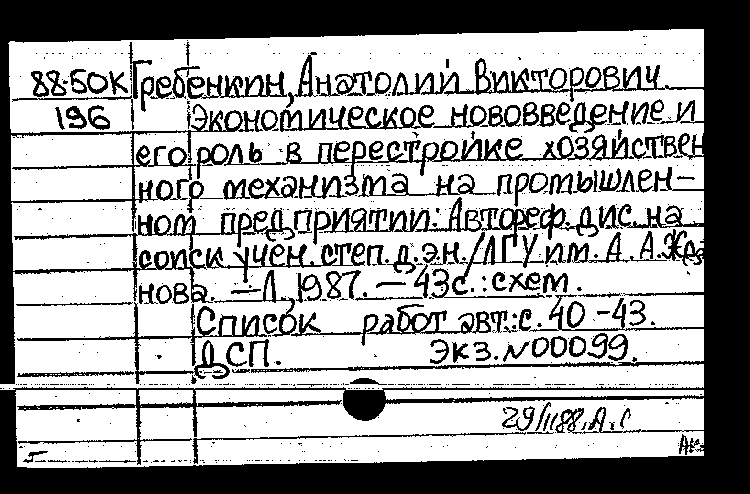 88-50К Гребенкин, Анатолий Викторович.
196 Экономическое нововведение и
его роль в перестройке хозяйствен
ного механизма на промышлен-
ном предприятии: Автореф. дис. на
соиск. учен. степ. д.э.н. /ЛГУ им. А. А. Жда
нова. — Л., 1987. — 43с.: схем.
Список работ авт.: с. 40-43.
ДСП. Экз. N00099.